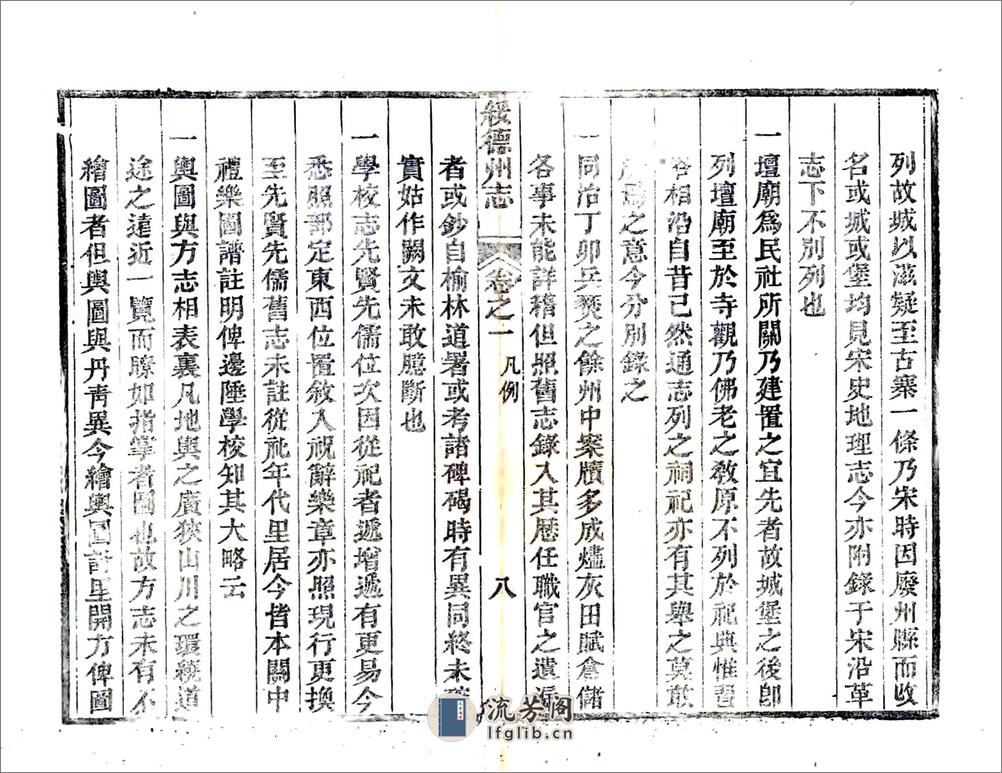 列故城以滋疑至古寨一條乃宋時因廢州縣而改
名或城或堡均見宋史地理志今亦附錄于宋沿革
志下不別列也
一壇廟爲民社所關乃建置之宜先者故城堡之後卽
列壇廟至於寺觀乃佛老之教原不列於祀典惟習
俗相沿自昔已然通志列之祠祀亦有其舉之莫敢
之意今分別錄之
一同治丁卯兵燹之餘州中案牘多成燼灰田賦倉儲
各事未能詳稽但照舊志錄入其歷任職官之遺漏
者或鈔自榆林道署或考諸碑碣時有異同終未
實姑作闕文未敢臆斷也
綏德州志
卷之一
凡例
八
一學校志先賢先儒位次因從祀者遞增遞有更易今
悉照部定東西位置敘入祝辭樂章亦照現行更換
至先賢先儒舊志未註從祀年代里居今皆本關中
禮樂圖譜註明俾邊陲學校知其大略云
一輿圖與方志相表裏凡地輿之廣狹山川之環繞道
途之遠近一覽而瞭如指掌者圖也故方志未有不
繪圖者但輿圖與丹青異今繪輿圖計里開方俾圖
流芳阁
lfglib.cn